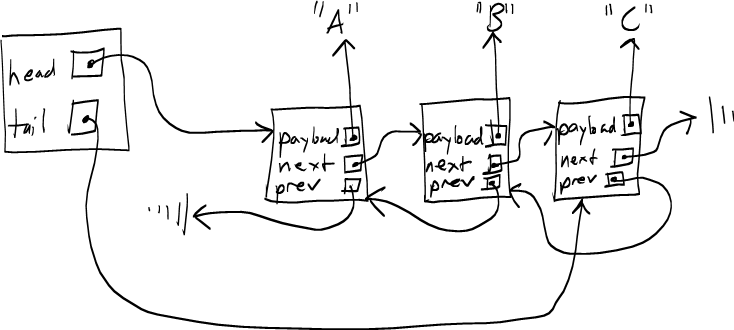 "A"
"B"
"C"
head
tail
payload
next
prev
payload
next
prev
payload
next
prev